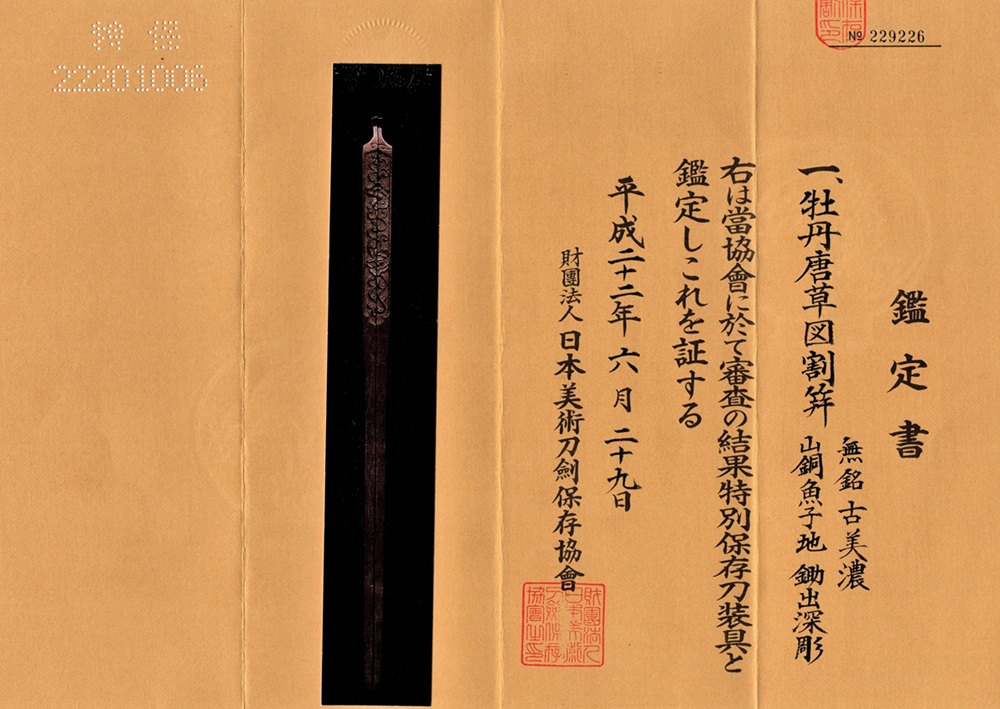 鑑定書
一、牡丹唐草図割笄
無銘 古美濃
山銅魚子地 鋤出深彫
右は當協會に於て審査の結果特別保存刀装具と
鑑定しこれを証する
平成二十二年 六月 二十九日
財團法人 日本美術刀劍保存協會
№ 229226
22201006